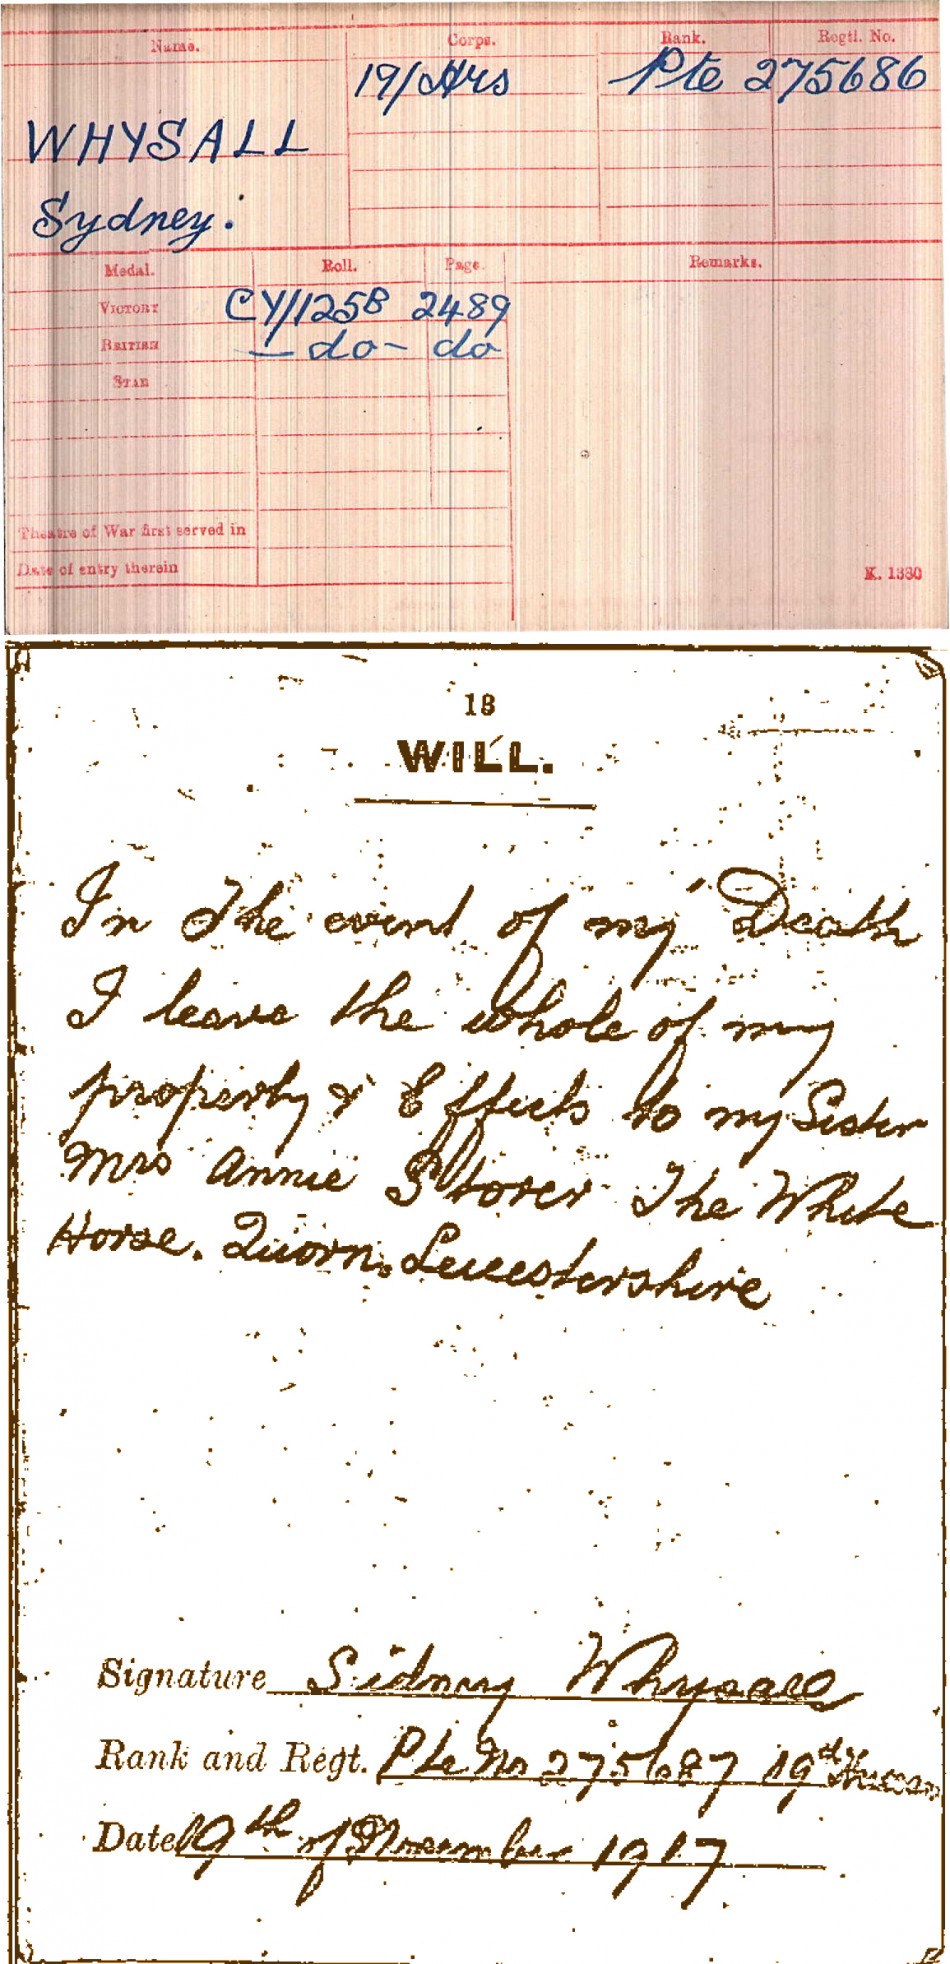 Name. Corps. Rank. Regtl. No.
19/Hrs Pte 275686
WHYSALL
Sydney.
Medal. Roll. Page. Remarks.
VICTORY CY/125B 2489
BRITISH —do— do
STAR
Theatre of War first served in
Date of entry therein
K. 1380
18
WILL.
In The event of my Death
I leave the whole of my
property & Effects to my Sister
Mrs Annie Storer The White
Horse. Quorn, Leicestershire
Signature Sidney Whysall
Rank and Regt. Pte No 275687 19th Hussars
Date 19th of November 1917